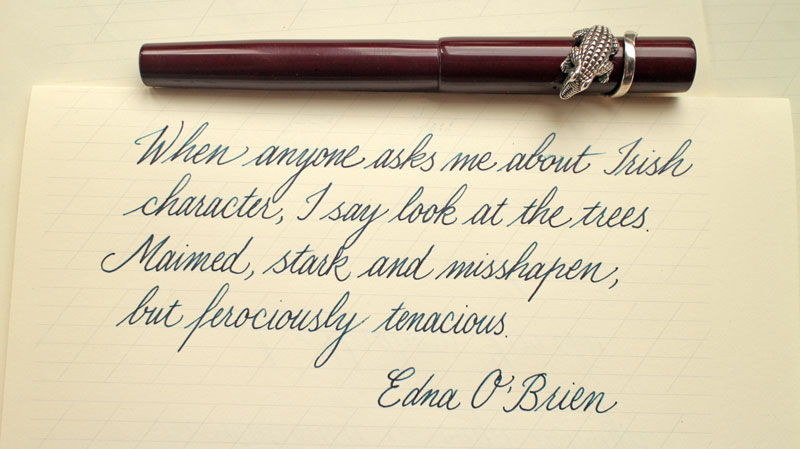 When anyone asks me about Irish
character, I say look at the trees.
Maimed, stark and misshapen,
but ferociously tenacious.
Edna O'Brien